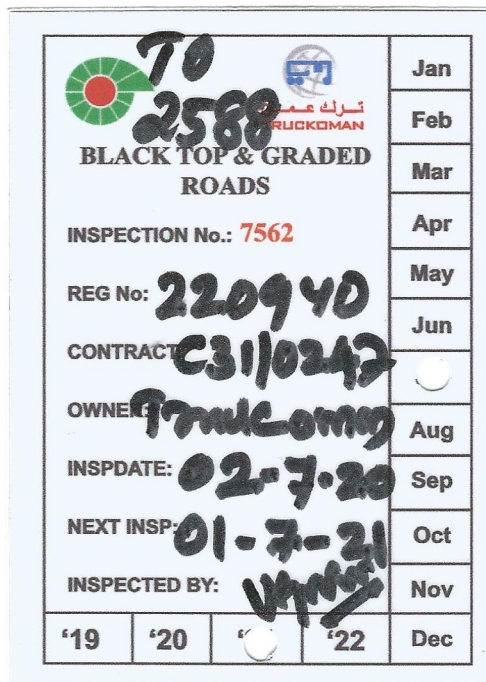 TO
2588
تـرك عـمـان
TRUCKOMAN
BLACK TOP & GRADED
ROADS
INSPECTION No.: 7562
REG No: 2209YD
CONTRACT: C31/0247
OWNER:
INSPDATE: 02-7-20
NEXT INSP: 01-7-21
INSPECTED BY:
Jan
Feb
Mar
Apr
May
Jun
Aug
Sep
Oct
Nov
Dec
‘19
‘20
‘22